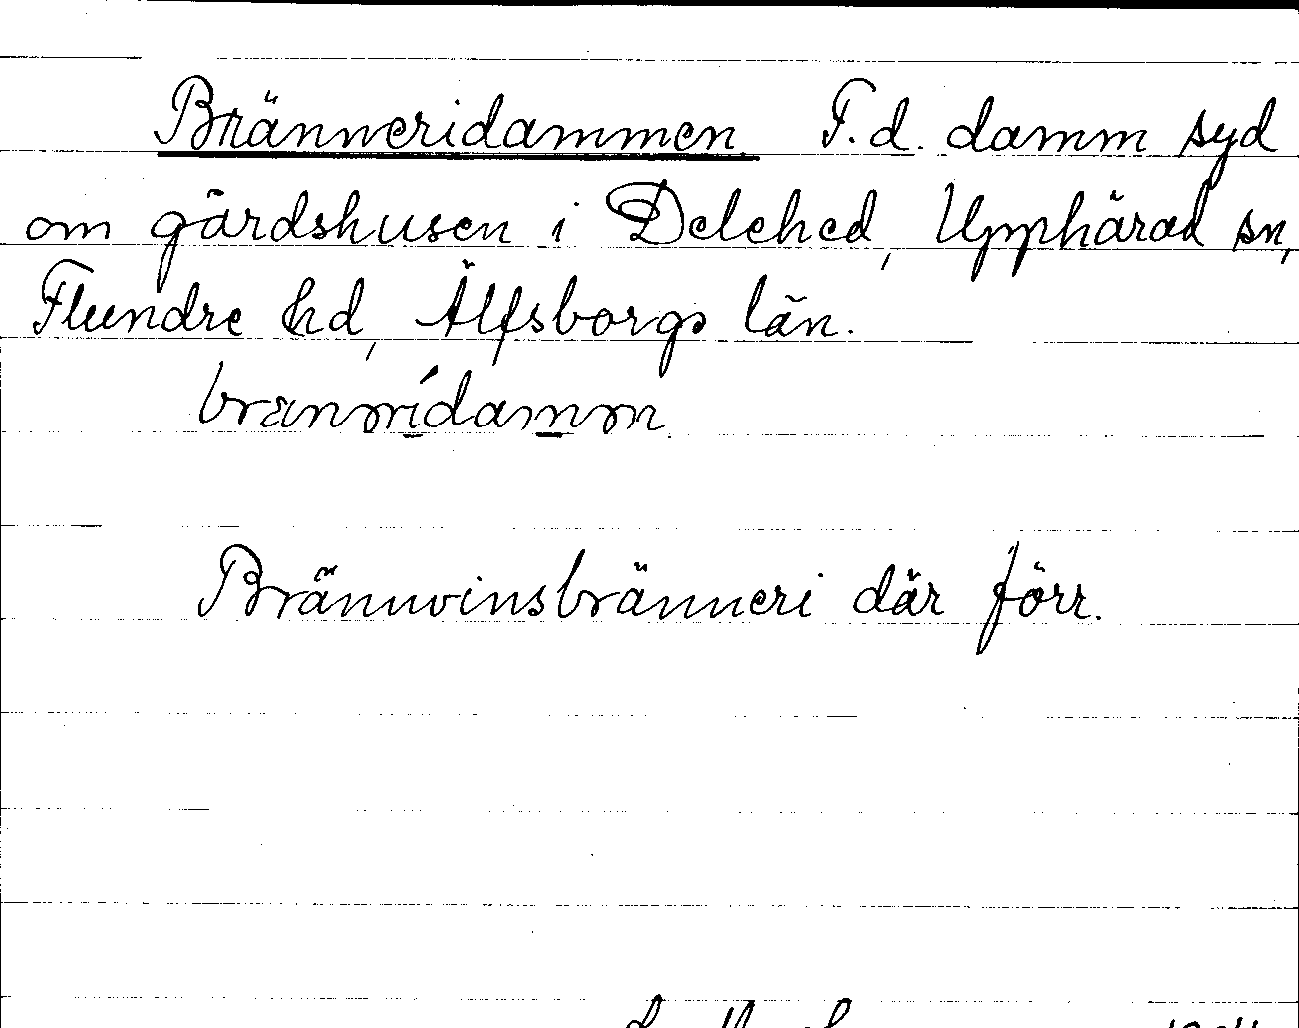 Bränneridammen F.d. damm syd
om gårdshusen i Delehed, Upphärad sn,
Flundre hd, Älfsborgs län.
Brännvinsbränneri där förr.